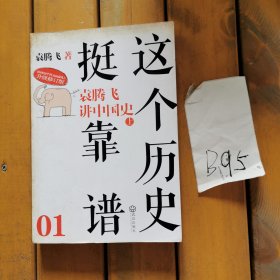 袁腾飞 著
这个历史
挺靠谱
袁腾飞
讲中国史 上
01
B95